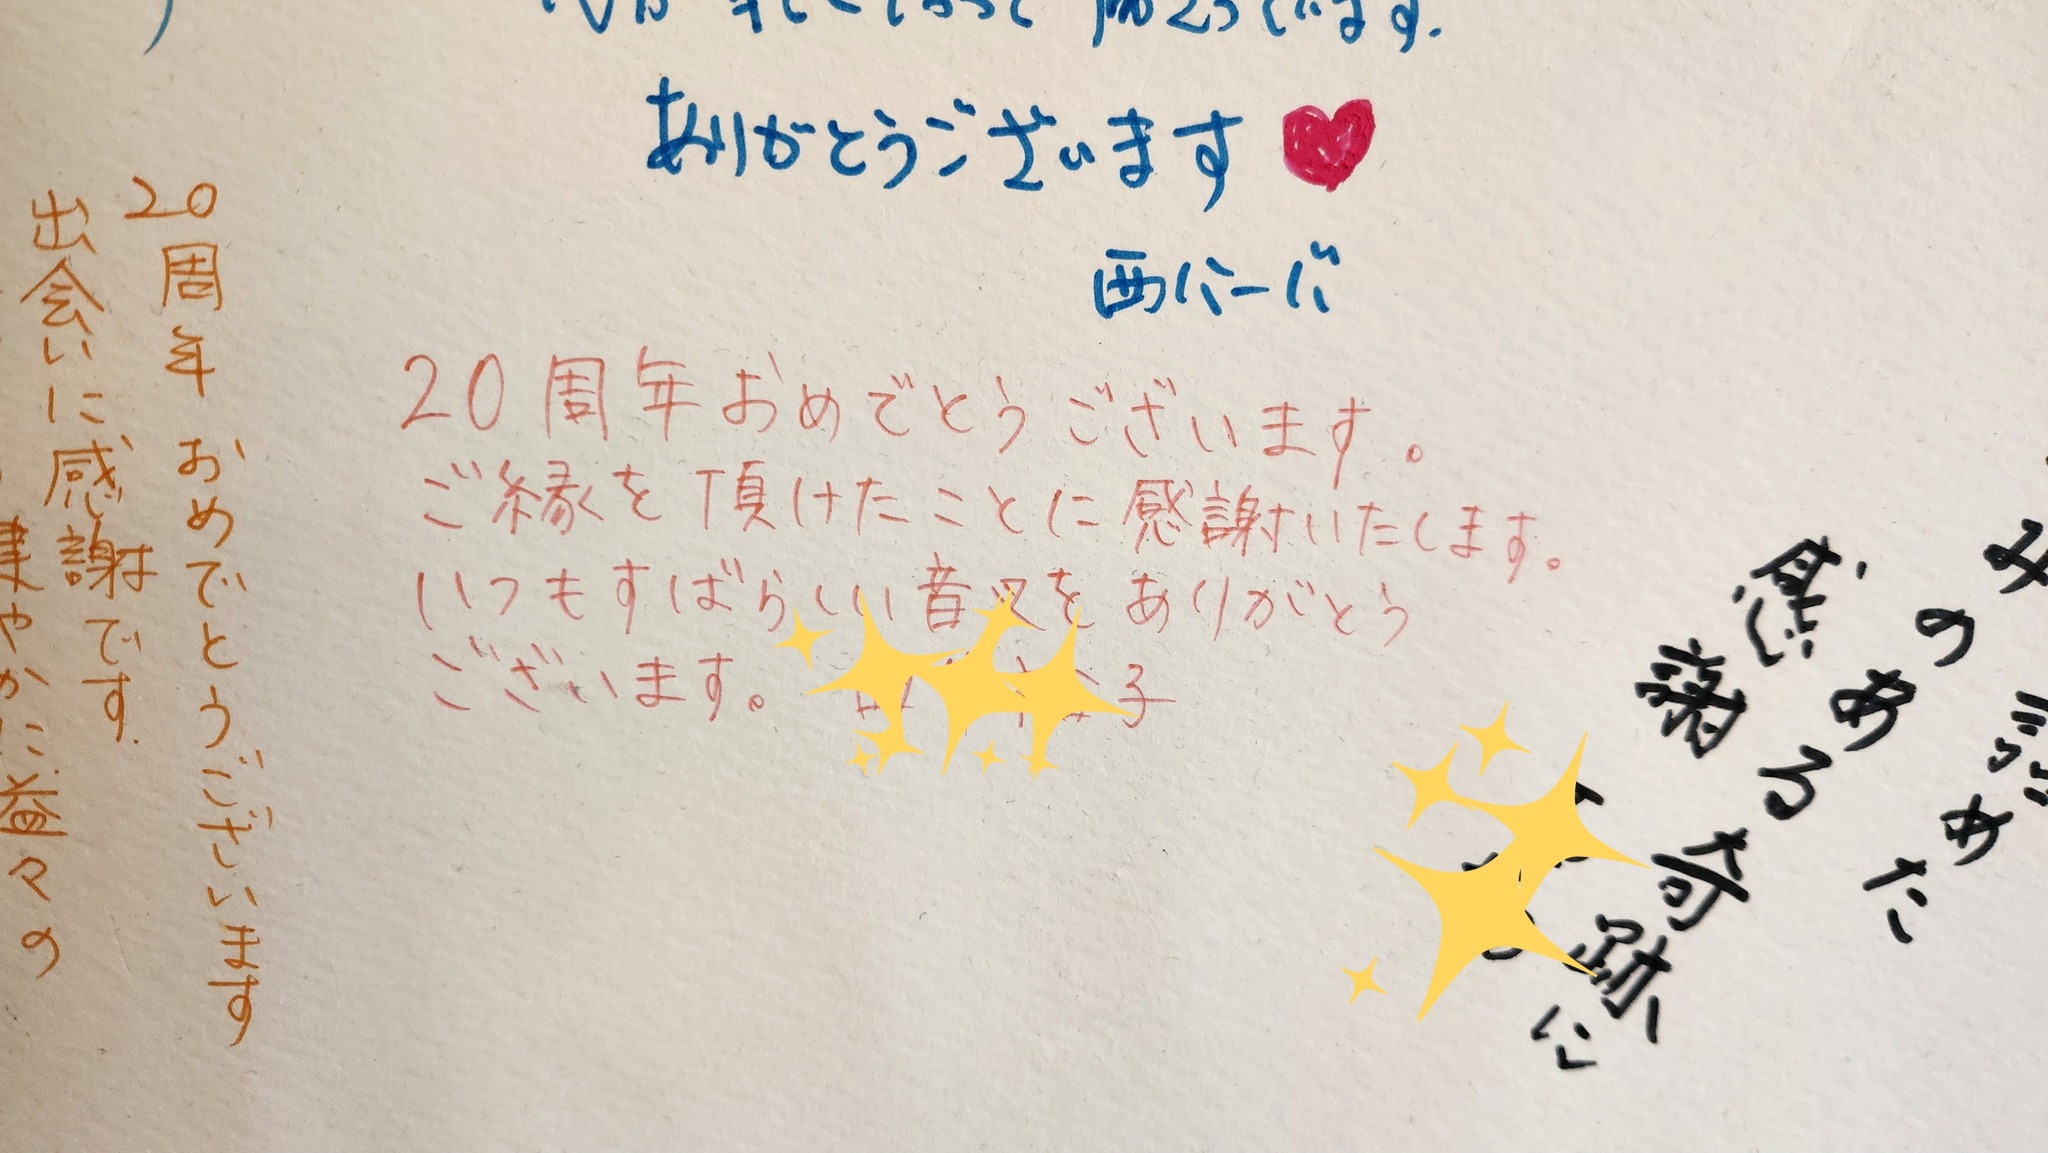 ありがとうございます
西バーバ
20周年おめでとうございます
出会いに感謝です.
やかに益々の
20周年おめでとうございます。
ご縁を頂けたことに感謝いたします。
いつもすばらしい音 を ありがとう
ございます。 子
めた
みのある奇跡に
感謝